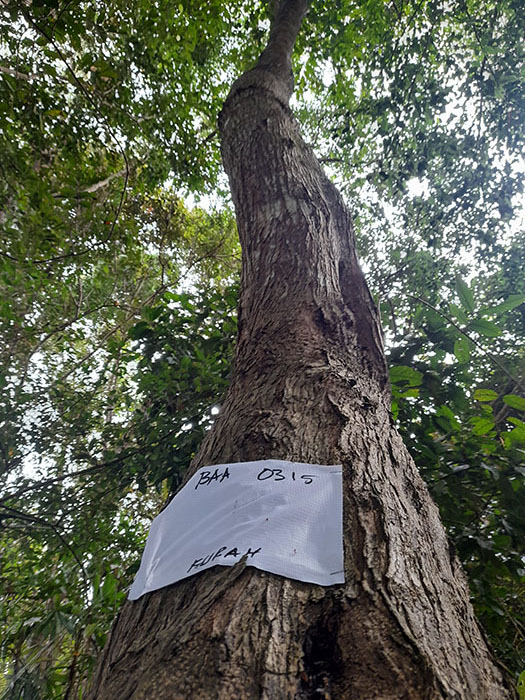 BAA 0315
KUPAH